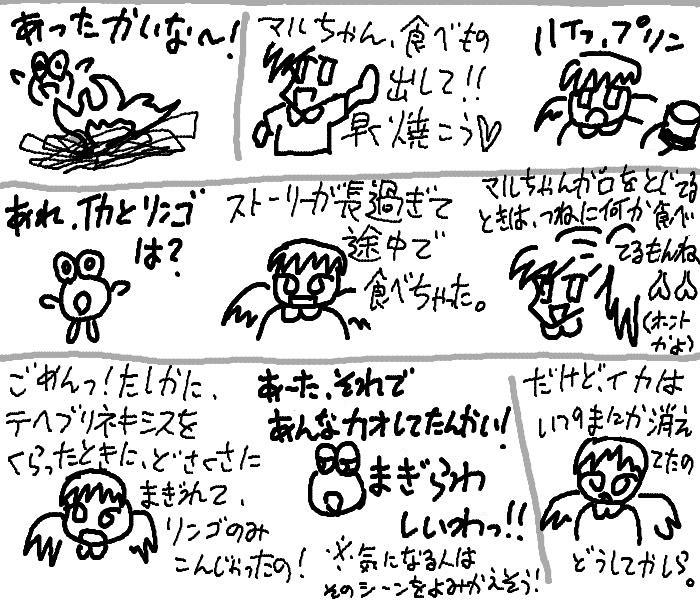 あったかいな〜!
マルちゃん、食べもの
出して!!
早く焼こう♡
ハイっ、プリン
あれ、イカとリンゴ
は?
ストーリーが長過ぎて
途中で
食べちゃった。
マルちゃんが口をとじてる
ときは、つねに何か食べ
てるもんね、
(ホント
かよ)
ごめんっ!たしかに、
テヘブリネキシスを
くらったときに、どさくさに
まぎれて、
リンゴのみ
こんじゃったの!
あーた、それで
あんなカオしてたんかい!
まぎらわ
しいわっ!!
※気になる人は
そのシーンをよみかえそう!
だけど、イカは
いつのまにか消え
てたの
どうしてかしら。